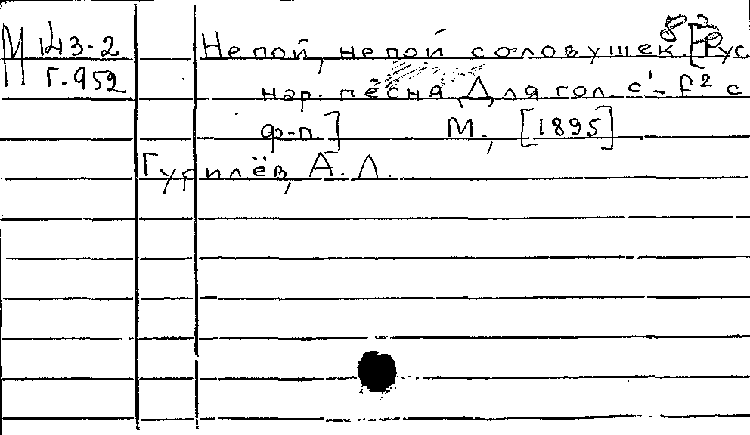 М 143-2
Г-952
Не пой, не пой соловушек. [Рус.
нар. песня. Для гол. c¹-f² с
ф-п.] М., [1895]
Гурилёв, А. Л.